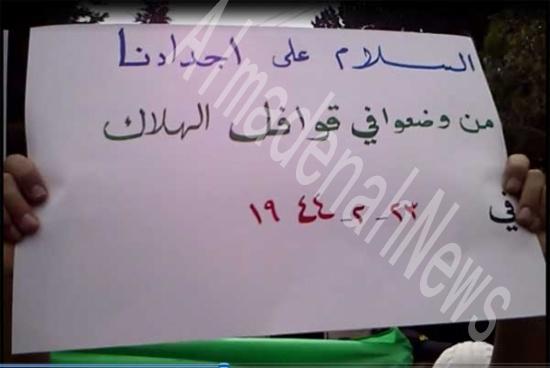 السلام على اجدادنا
من وضعوا في قوافل الهلاك
في ٢٣_٢_١٩٤٤
AlmadenahNews